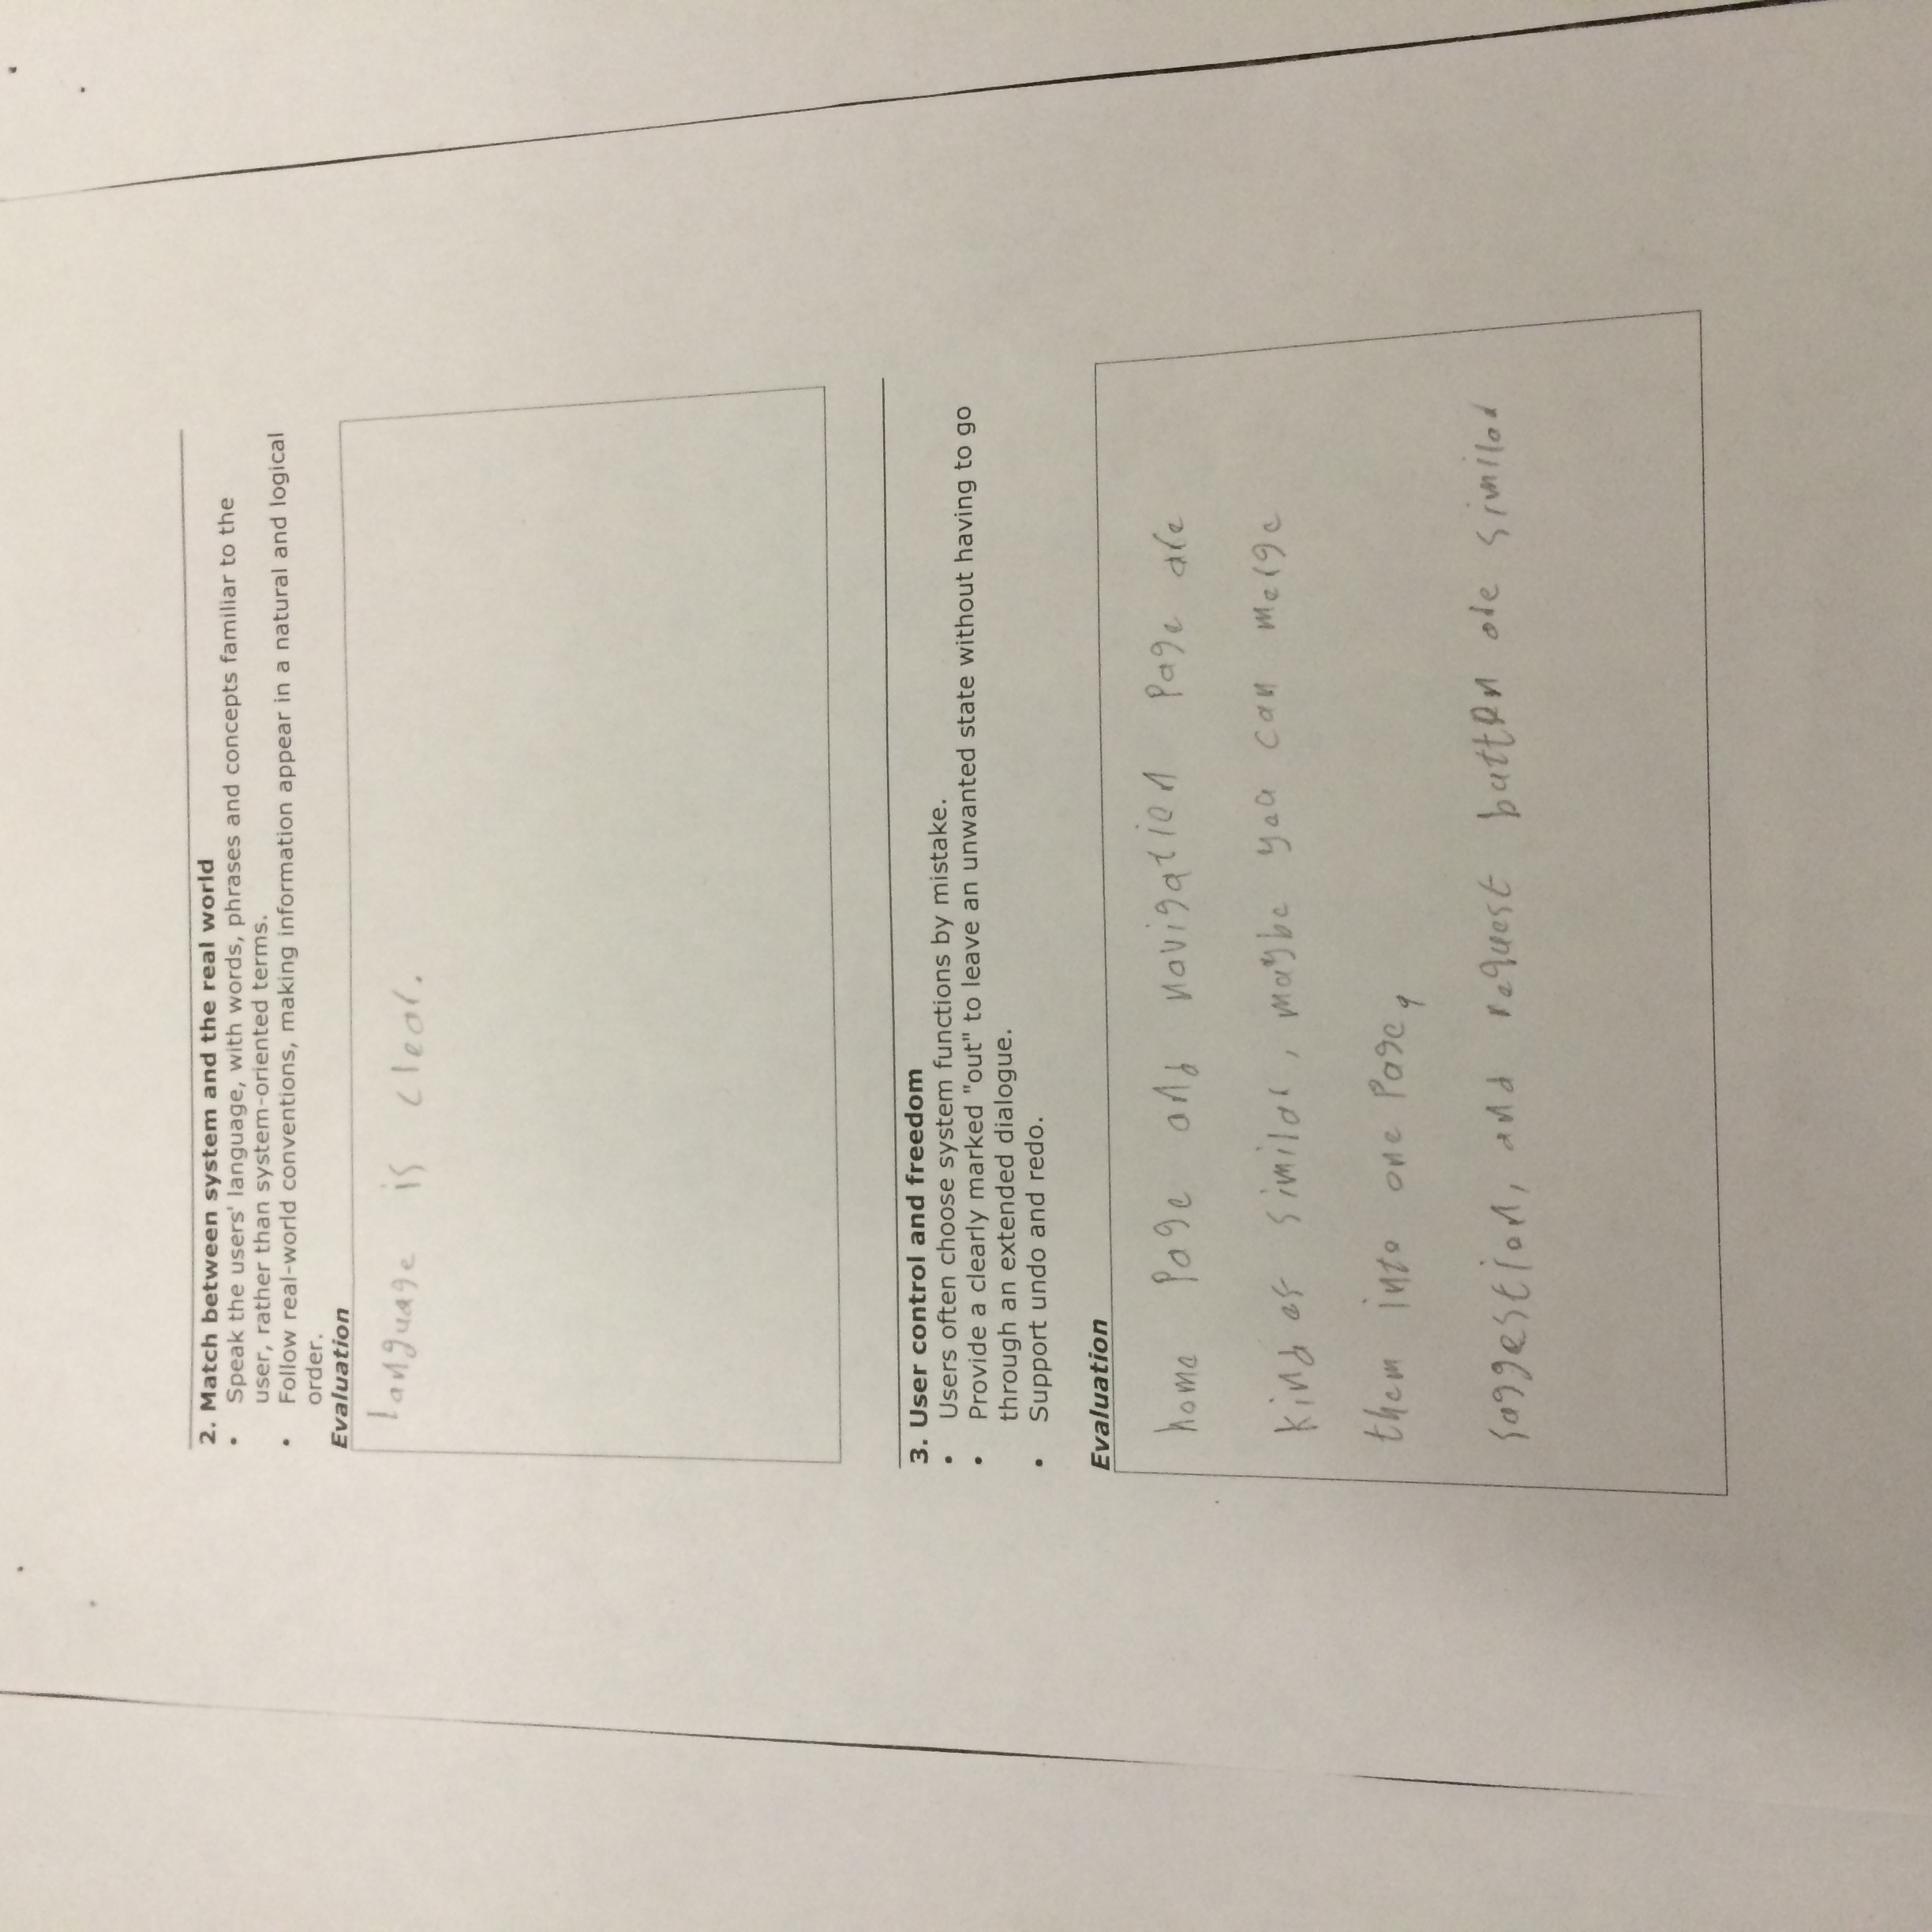 2. Match between system and the real world
• Speak the users' language, with words, phrases and concepts familiar to the
user, rather than system-oriented terms.
• Follow real-world conventions, making information appear in a natural and logical
order.
Evaluation
language is clear.
3. User control and freedom
• Users often choose system functions by mistake.
• Provide a clearly marked "out" to leave an unwanted state without having to go
through an extended dialogue.
• Support undo and redo.
Evaluation
home Page and navigation Page are
kind of similar, maybe you can merge
them into one Page,
suggestion, and request button are similar